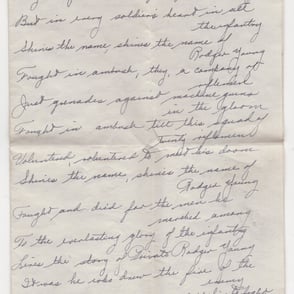 But in every soldier's heart in all
the infantry
Shines the name, shines the name of
Rodger Young
Fought in ambush, they, a company of
riflemen
Just grenades against machine guns
in the gloom
Fought in ambush till this squad of
twenty riflemen
Volunteered, volunteered to meet his doom
Shines the name, shines the name of
Rodger Young
Fought and died for the men he
marched among
To the everlasting glory of the infantry
Lives the story of Private Rodger Young
It was he who drew the fire of the
enemy